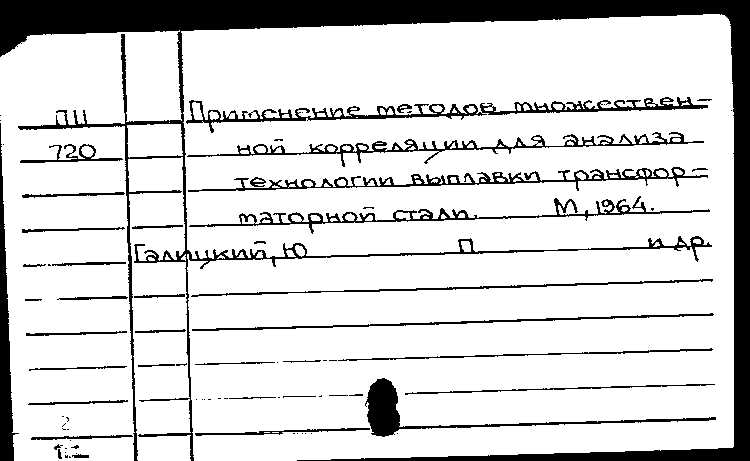 ПЦ Применение методов множествен=
720 ной корреляции для анализа
технологии выплавки трансфор=
маторной стали. М, 1964.
Галицкий, Ю П и др.
2